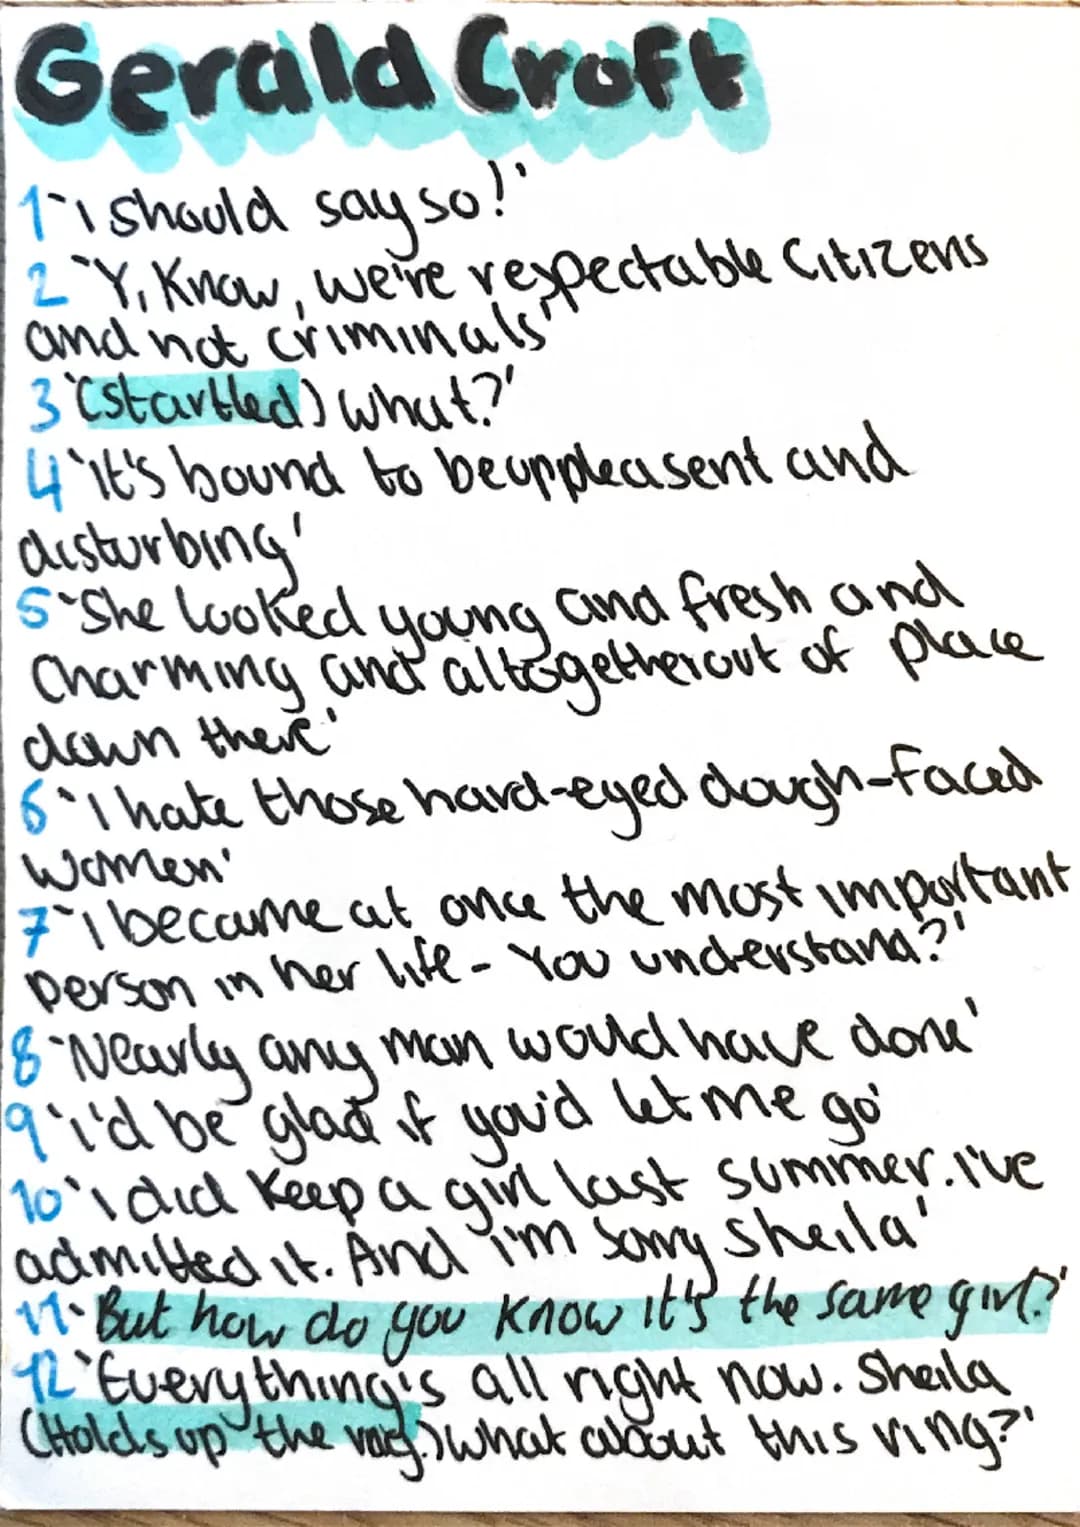 Gerald Croft
1 'i should say so!'
2 'Y, Know, we're respectable Citizens
and not criminals'
3 '(startled) what?'
4 'it's bound to be unpleasent and
disturbing'
5 'She looked young and fresh and
Charming and altogether out of place
down there'
6 'I hate those hard-eyed dough-faced
women'
7 'I became at once the most important
person in her life - You understand?'
8 'Nearly any man would have done'
9 'i'd be glad if you'd let me go'
10 'i did keep a girl last summer. I've
admitted it. And i'm sorry sheila'
11 'But how do you know it's the same girl?'
12 'Everything's all right now. Sheila
(Holds up the ring.) what about this ring?'